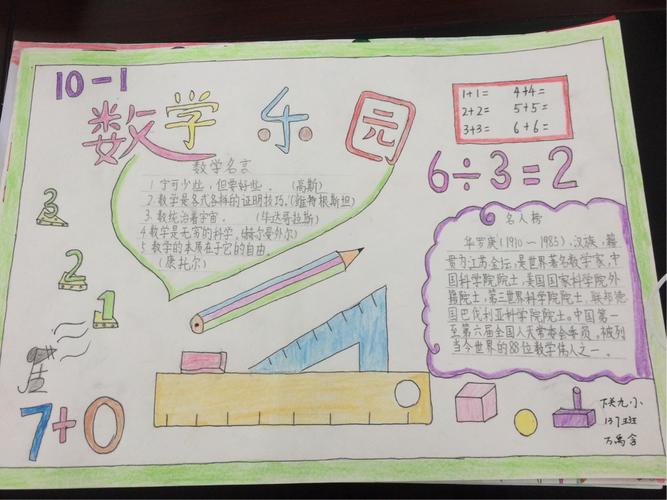 10-1
数学乐园
1+1= 4+4=
2+2= 5+5=
3+3= 6+6=
6÷3=2
数学名言
1.宁可少些，但要好些。 (高斯)
2.数学是各式各样的证明技巧.(维特根斯坦)
3.数统治着宇宙。 (毕达哥拉斯)
4.数学是无穷的科学.(赫尔曼外尔)
5.数学的本质在于它的自由.
(康托尔)
名人榜
华罗庚(1910～1985),汉族,籍
贯为江苏金坛,是世界著名数学家,中
国科学院院士,美国国家科学院外
籍院士,第三世界科学院院士,联邦德
国巴伐利亚科学院院士.中国第一
至第六届全国人大常委会委员.被列
当今世界的88位数学伟人之一.
3
2
1
7+0
九小
137班